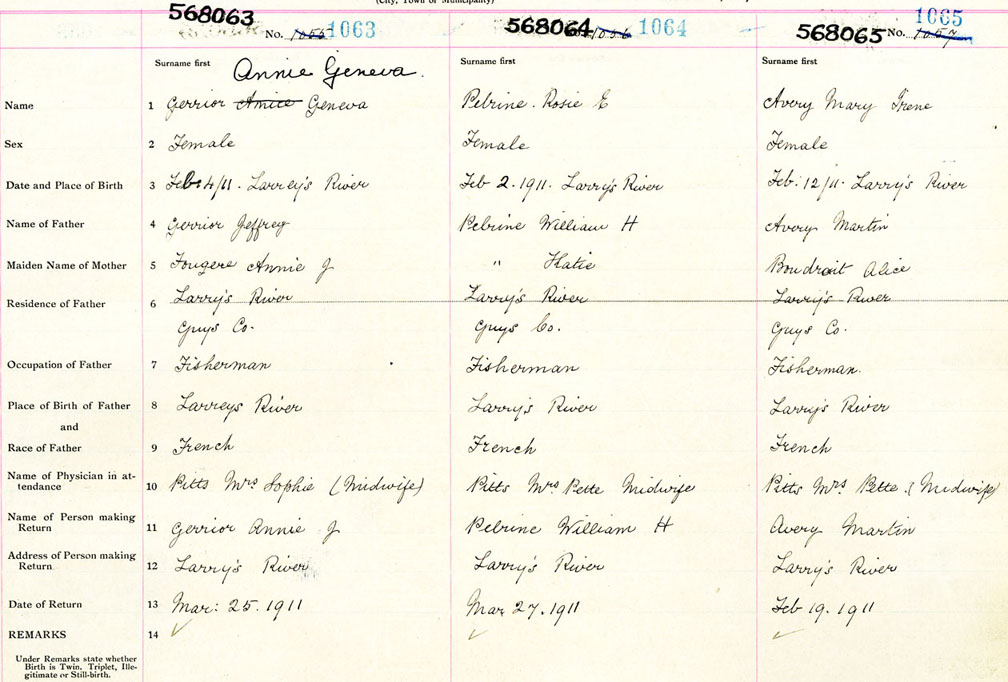 (City, Town or Municipality)
568063 No. 1063
568064 1064
568065 No. 1057 1065
Surname first Surname first Surname first
Annie Geneva.
Name 1 Gerrior Amice Geneva Pelrine. Rosie E Avery Mary Irene
Sex 2 Female Female Female
Date and Place of Birth 3 Feb: 4/11. Larrey's River Feb 2. 1911. Larry's River Feb: 12/11. Larry's River
Name of Father 4 Gerrior Jeffrey Pelrine William H Avery Martin
Maiden Name of Mother 5 Fougere Annie J " Katie Boudroit Alice
Residence of Father 6 Larry's River Larry's River Larry's River
Guys Co. Guys Co. Guys Co.
Occupation of Father 7 Fisherman Fisherman Fisherman.
Place of Birth of Father 8 Larreys River Larry's River Larry's River
and
Race of Father 9 French French French
Name of Physician in at-
tendance 10 Pitts Mrs Sophie (Midwife) Pitts Mrs Bette Midwife Pitts Mrs Bette. (Midwife)
Name of Person making
Return 11 Gerrior Annie J Pelrine William H Avery Martin
Address of Person making
Return 12 Larry's River Larry's River Larry's River
Date of Return 13 Mar: 25. 1911 Mar 27. 1911 Feb 19. 1911
REMARKS 14
Under Remarks state whether
Birth is Twin, Triplet, Ille-
gitimate or Still-birth.